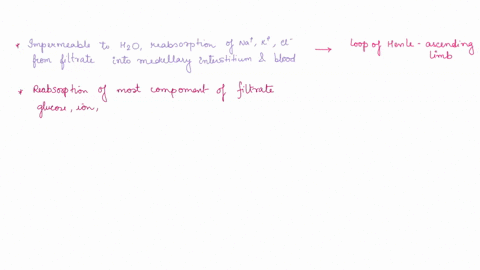 * Impermeable to H2O, reabsorption of Na+, K+, Cl- → loop of Henle - ascending
from filtrate into medullary interstitium & blood limb
* Reabsorption of most component of filtrate
glucose, ion,